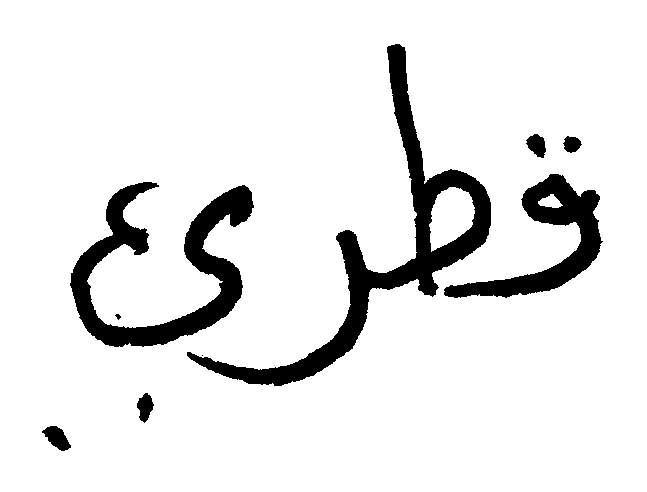 قطري